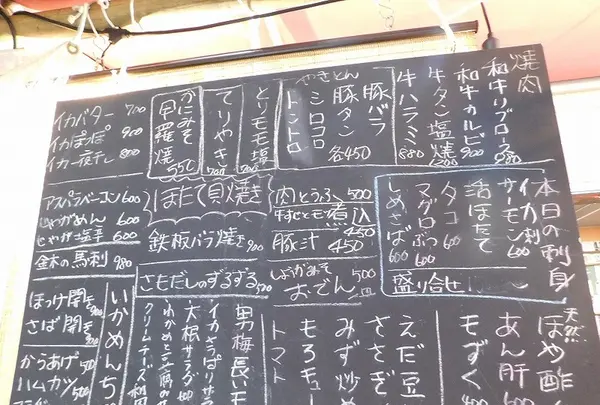 焼肉
和牛リブロース 980
和牛カルビ 900
牛タン塩焼 1200
牛ハラミ 880
やきとん
豚バラ
豚タン
シロコロ
トントロ
各450
とりモモ塩 700
てりやき 700
かにみそ
甲羅焼 550
イカバター 700
イカぽっぽ 900
イカ一夜干し 800
本日の刺身
イカ刺
サーモン 600
活ほたて
タコ 600
マグロぶつ 600
しめさば 600
盛り合せ
肉とうふ 500
牛すじとモツ煮込 450
豚汁 450
しょうがみそ
おでん 500
ほたて貝焼き
鉄板バラ焼き 900
さもだしのずるずる 500
アスパラベーコン 600
じゃがめん 600
じゃが塩辛 600
金木の馬刺 980
天然
ほや酢
あん肝
もずく
えだ豆
ささぎ
みず炒め
もろキュー
トマト
男梅長いモ
イカさっぱりサラダ
大根サラダ
わかめと豆腐のサ
クリームチーズ
いかめんち
ほっけ開き
さば開き
からあげ 500
ハムカツ 500